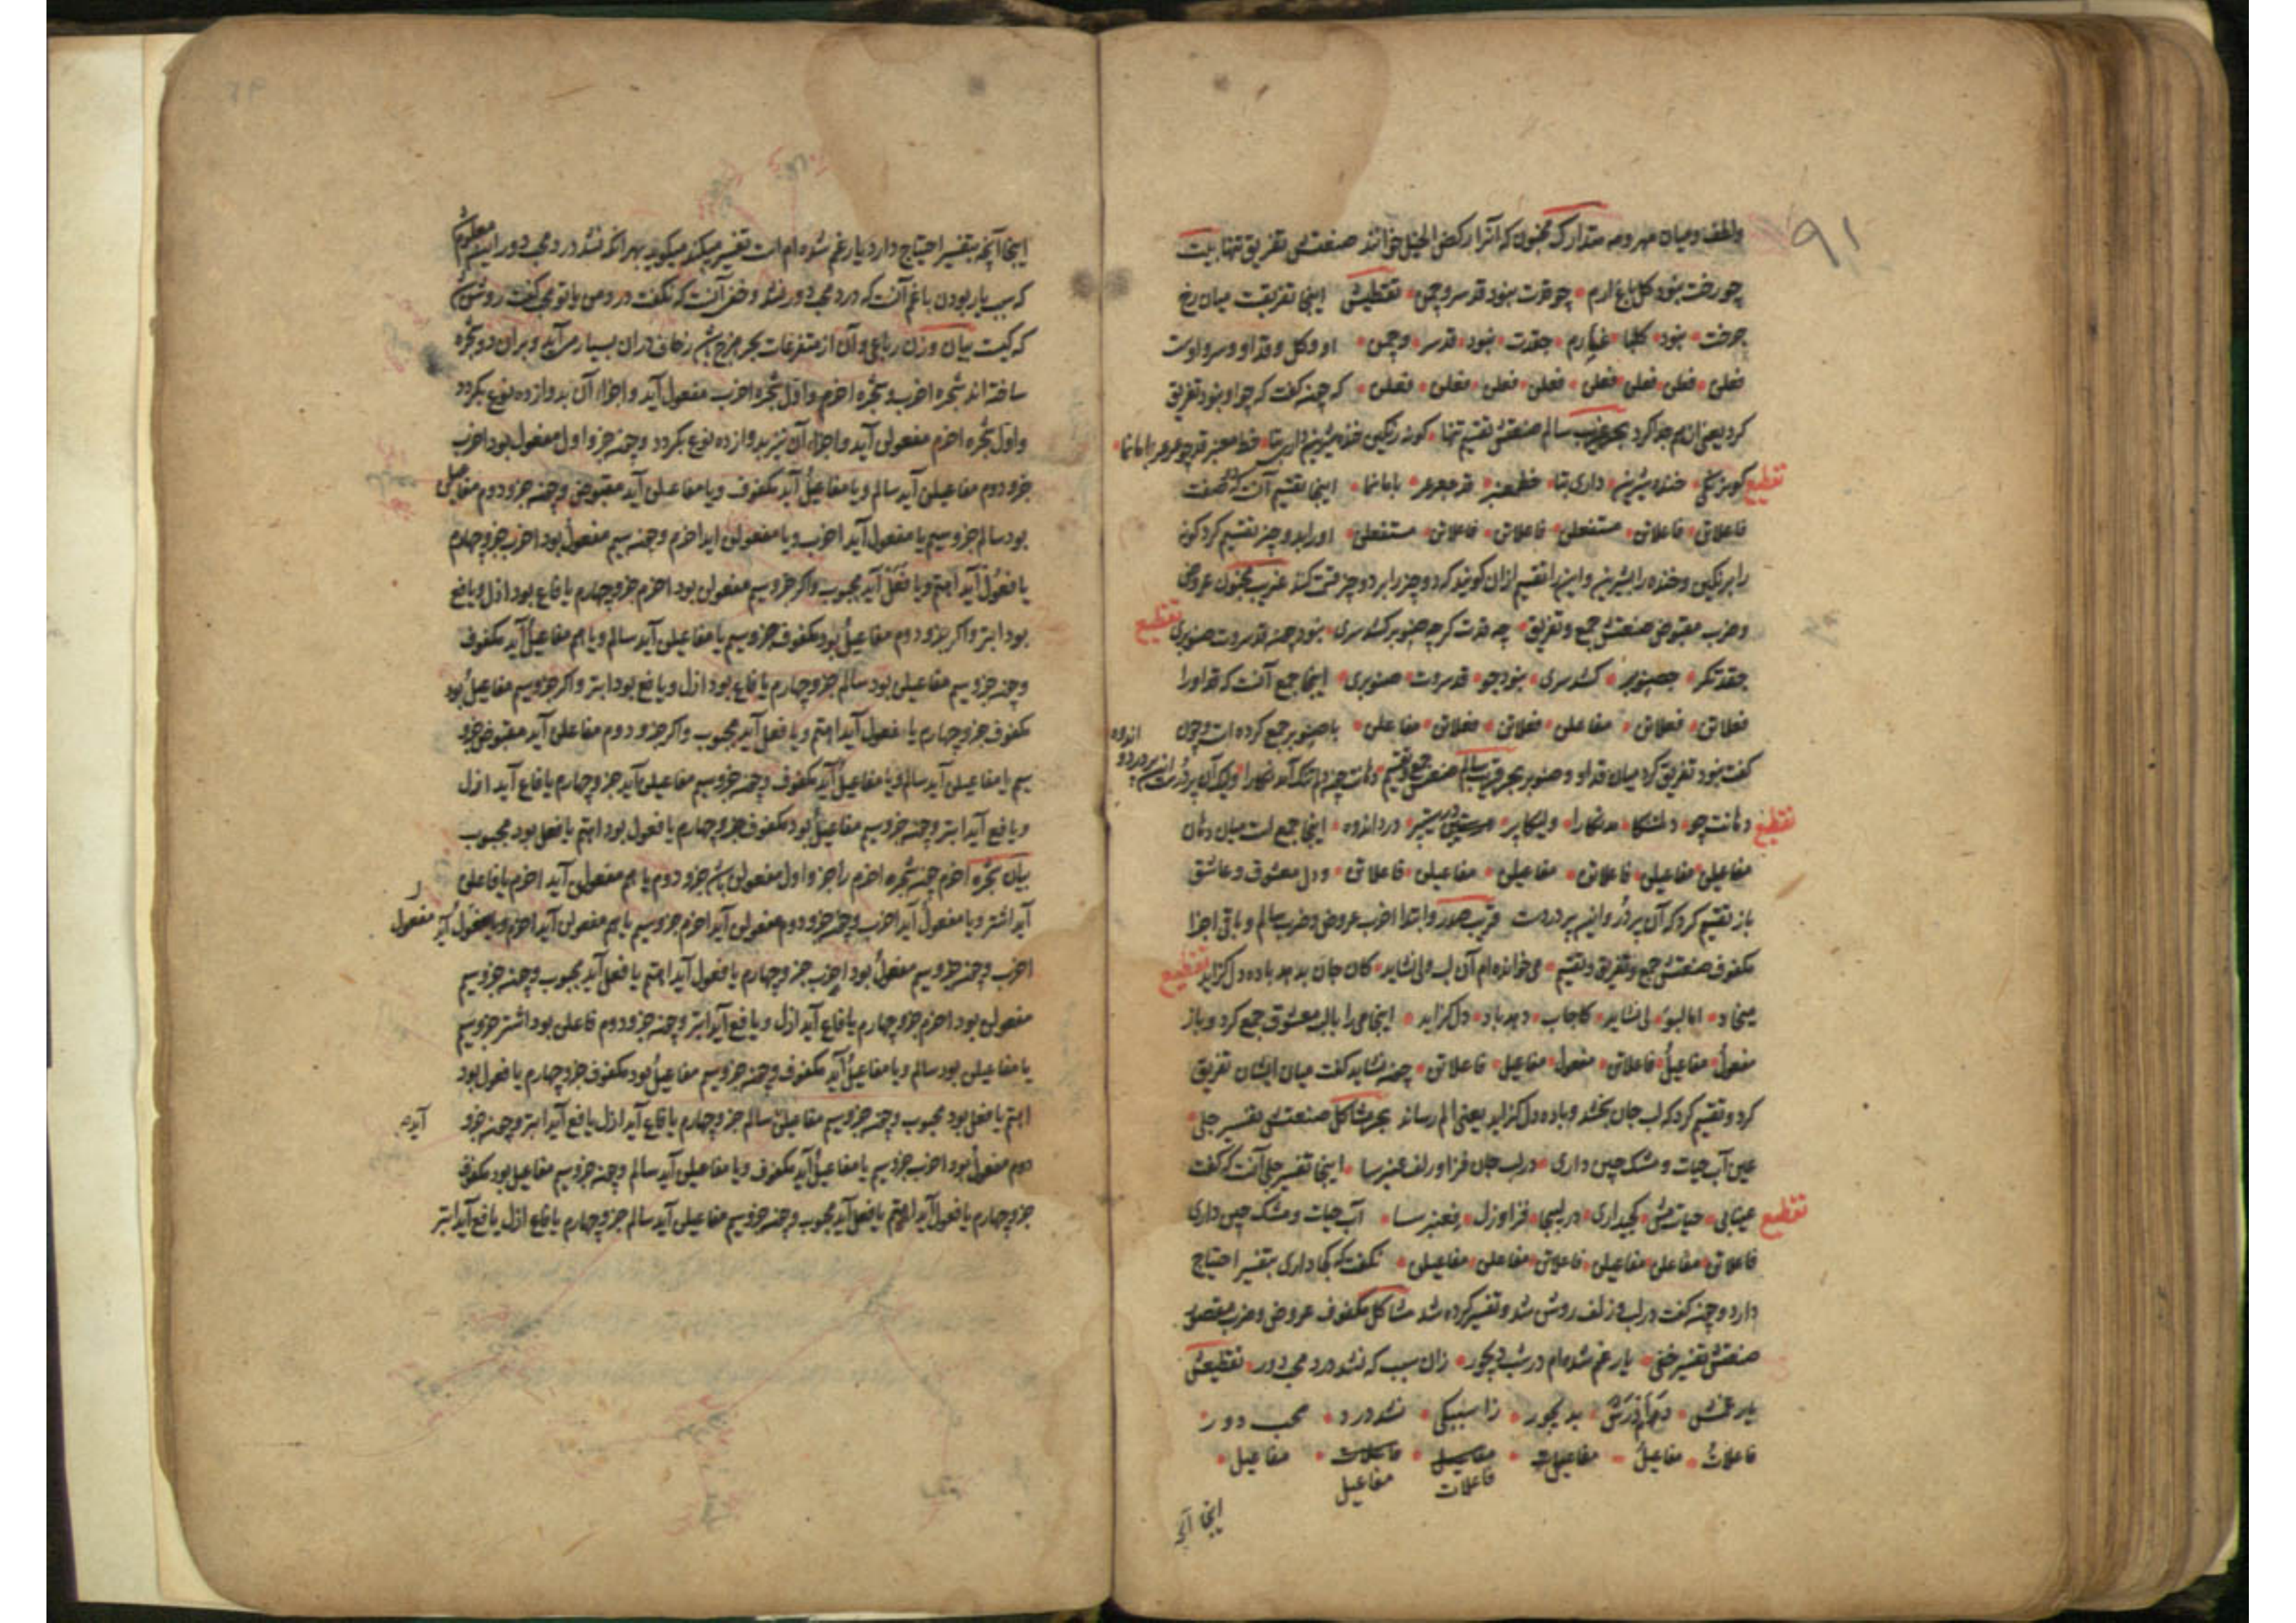 ۹۱
ولطف ومیان مهر ومه متدارک مخبون که آنرا رکض الخیل خوانند صنعتش تفریق تنها بیت
چو رخت نبود گل باغ ارم چو قدت نبود قد سرو چمن تقطیعش اینجا تفریقست میان رخ
چرخت نبود گلبا غ ارم چقدت نبود قد سر و چمن او و گل و قد او و سرو اوست
فعلن فعلن فعلن فعلن فعلن فعلن فعلن فعلن که چنه گفت که چو او نبود تفریق
کرد یعنی از هم جدا کرد بحر غریب سالم صنعتش تقسیم تنها گونه رنگین خنده شیرین داری بتا خط معنبر قد چو عرعر با ما نما
تقطیع گونرنگی خنده شیرین داری بتا خططعنبر قدچعرعر باما نما اینجا تقسیم آنست که صفت
فاعلاتن فاعلاتن مستفعلن فاعلاتن فاعلاتن مستفعلن او را بدو چیز تقسیم کرد گونه
را برنگین و خنده را بشیرین و این را تقسیم از آن گویند که دو چیز را بر دو چیز قسمت کند غریب مخبون عروض
وضرب مقبوض صنعتش جمع وتفریق چه قدت گر چه صنوبر کشد سری نبود چنه قد سروت صنوبری تقطیع
چقدتگر چصنوبر کشد سری نبودچو قد سروت صنوبری اینجا جمع آنست که قد او را
فعلاتن فعلاتن مفاعلن فعلاتن فعلاتن مفاعلن با صنوبر جمع کرده است وچون
گفت نبود تفریق کرد میان قد او و صنوبر بحر قریب سالم صنعتش جمع وتقسیم دهانت چنه دلم تنگ آمد نگارا ولیک آن پر درست این پر درد و اندوه
تقطیع دهانتچو دلمتنگا مدنگارا ولیکاپر درستین پر درداندوه اینجا جمع است میان دهان
مفاعیلن مفاعیلن فاعلاتن مفاعیلن مفاعیلن فاعلاتن و دل معشوق و عاشق
باز تقسیم کرد که آن پر در و این پر دردست قریب صدر وابتدا اخرب عروض وضرب سالم و باقی اجزا
مکفوف صنعتش جمع وتفریق وتقسیم می خوانده ام آن لب ولی نشاید کان جان بدهد باده دل گزاید تقطیع
میخا د امالبو لینشاید کاجاب دهدباد دل گزاید اینجا می را با لب معشوق جمع کرد و باز
مفعول مفاعیل فاعلاتن مفعول مفاعیل فاعلاتن چنه نشاید گفت میان ایشان تفریق
کرد و تقسیم کرد که لب جان بخشد و باده دل گزاید یعنی الم رساند بحر مشاکل صنعتش تفسیر جلی
عین آب حیات و مشک چین داری در لب جان فزا و زلف عنبرسا اینجا تفسیر جلی آنست که گفت
تقطیع عینابی حیات مش کچیداری در لبیجا فزاوزل فعنبرسا آب حیات و مشک چین داری
فاعلاتن مفاعلن مفاعیلن فاعلاتن مفاعلن مفاعیلن نگفت که کجا داری بتفسیر احتیاج
دارد و چنه گفت در لب و زلف روشن شد و تفسیر کرده شد مشاکل مکفوف عروض وضرب مقصور
صنعتش تفسیر خفی یار غم شده ام در شب دیجور زان سبب که نشد درد محب دور تقطیعش
یار غمش دهام درش بدیجور زا سببکی نشد درد محب دور
فاعلات مفاعیل مفاعیل فاعلات مفاعیل مفاعیل
اینجا آنچه
اینجا آنچه بتفسیر احتیاج دارد یار غم شده ام است تفسیر میکند میگوید بهر آنکه نشد درد محب دور
که سبب یار بودن با غم آنست که درد محب دور نشد وخفی آنست که نگفت درد من یا تو محب گفت روشن
که کیست بیان وزن رباعی و آن از متفرعات بحر هزج باشد زحاف در آن بسیار می آید و بر آن دو شجره
ساخته اند شجره اخرب و شجره اخرم واول شجره اخرب مفعول آید و اجزاء آن بدوازده نوع بگردد
واول شجره اخرم مفعولن آید و اجزاء آن نیز بدوازده نوع بگردد و چنه جزو اول مفعول بود اخرب
جزو دوم مفاعیلن آید سالم ویا مفاعیل آید مکفوف ویا مفاعلن آید مقبوض و چنه جزو دوم مفاعیلن
بود سالم جزو سیم یا مفعول آید اخرب ویا مفعولن آید اخرم و چنه سیم مفعول بود اخرب جزو چهارم
یا فعول آید اهتم ویا فعل آید مجبوب واگر جزو سیم مفعولن بود اخرم جزو چهارم یا فاع بود ازل ویا فع
بود ابتر واگر جزو دوم مفاعیل بود مکفوف جزو سیم یا مفاعیلن آید سالم ویا هم مفاعیل آید مکفوف
و چنه جزو سیم مفاعیلن بود سالم جزو چهارم یا فاع بود ازل ویا فع بود ابتر واگر جزو سیم مفاعیل بود
مکفوف جزو چهارم یا فعول آید اهتم ویا فعل آید مجبوب واگر جزو دوم مفاعلن آید مقبوض جزو
سیم یا مفاعیلن آید سالم ویا مفاعیل آید مکفوف و چنه جزو سیم مفاعیلن آید جزو چهارم یا فاع آید ازل
ویا فع آید ابتر و چنه جزو سیم مفاعیل بود مکفوف جزو چهارم یا فعول بود اهتم یا فعل بود مجبوب
بیان شجره اخرم چنه شجره اخرم را جزو اول مفعولن باشد جزو دوم یا هم مفعولن آید اخرم یا فاعلن
آید اشتر ویا مفعول آید اخرب و چنه جزو دوم مفعولن آید اخرم جزو سیم یا هم مفعولن آید اخرم ویا مفعول آید
اخرب و چنه جزو سیم مفعول بود اخرب جزو چهارم یا فعول آید اهتم یا فعل آید مجبوب و چنه جزو سیم
مفعولن بود اخرم جزو چهارم یا فاع آید ازل ویا فع آید ابتر و چنه جزو دوم فاعلن بود اشتر جزو سیم
یا مفاعیلن بود سالم ویا مفاعیل آید مکفوف و چنه جزو سیم مفاعیل بود مکفوف جزو چهارم یا فعول بود
اهتم یا فعل بود مجبوب و چنه جزو سیم مفاعیلن سالم جزو چهارم یا فاع آید ازل یا فع آید ابتر و چنه جزو
دوم مفعول بود اخرب جزو سیم یا مفاعیل آید مکفوف ویا مفاعیلن آید سالم و چنه جزو سیم مفاعیل بود مکفوف
جزو چهارم یا فعول آید اهتم یا فعل آید مجبوب و چنه جزو سیم مفاعیلن آید سالم جزو چهارم یا فاع ازل یا فع آید ابتر